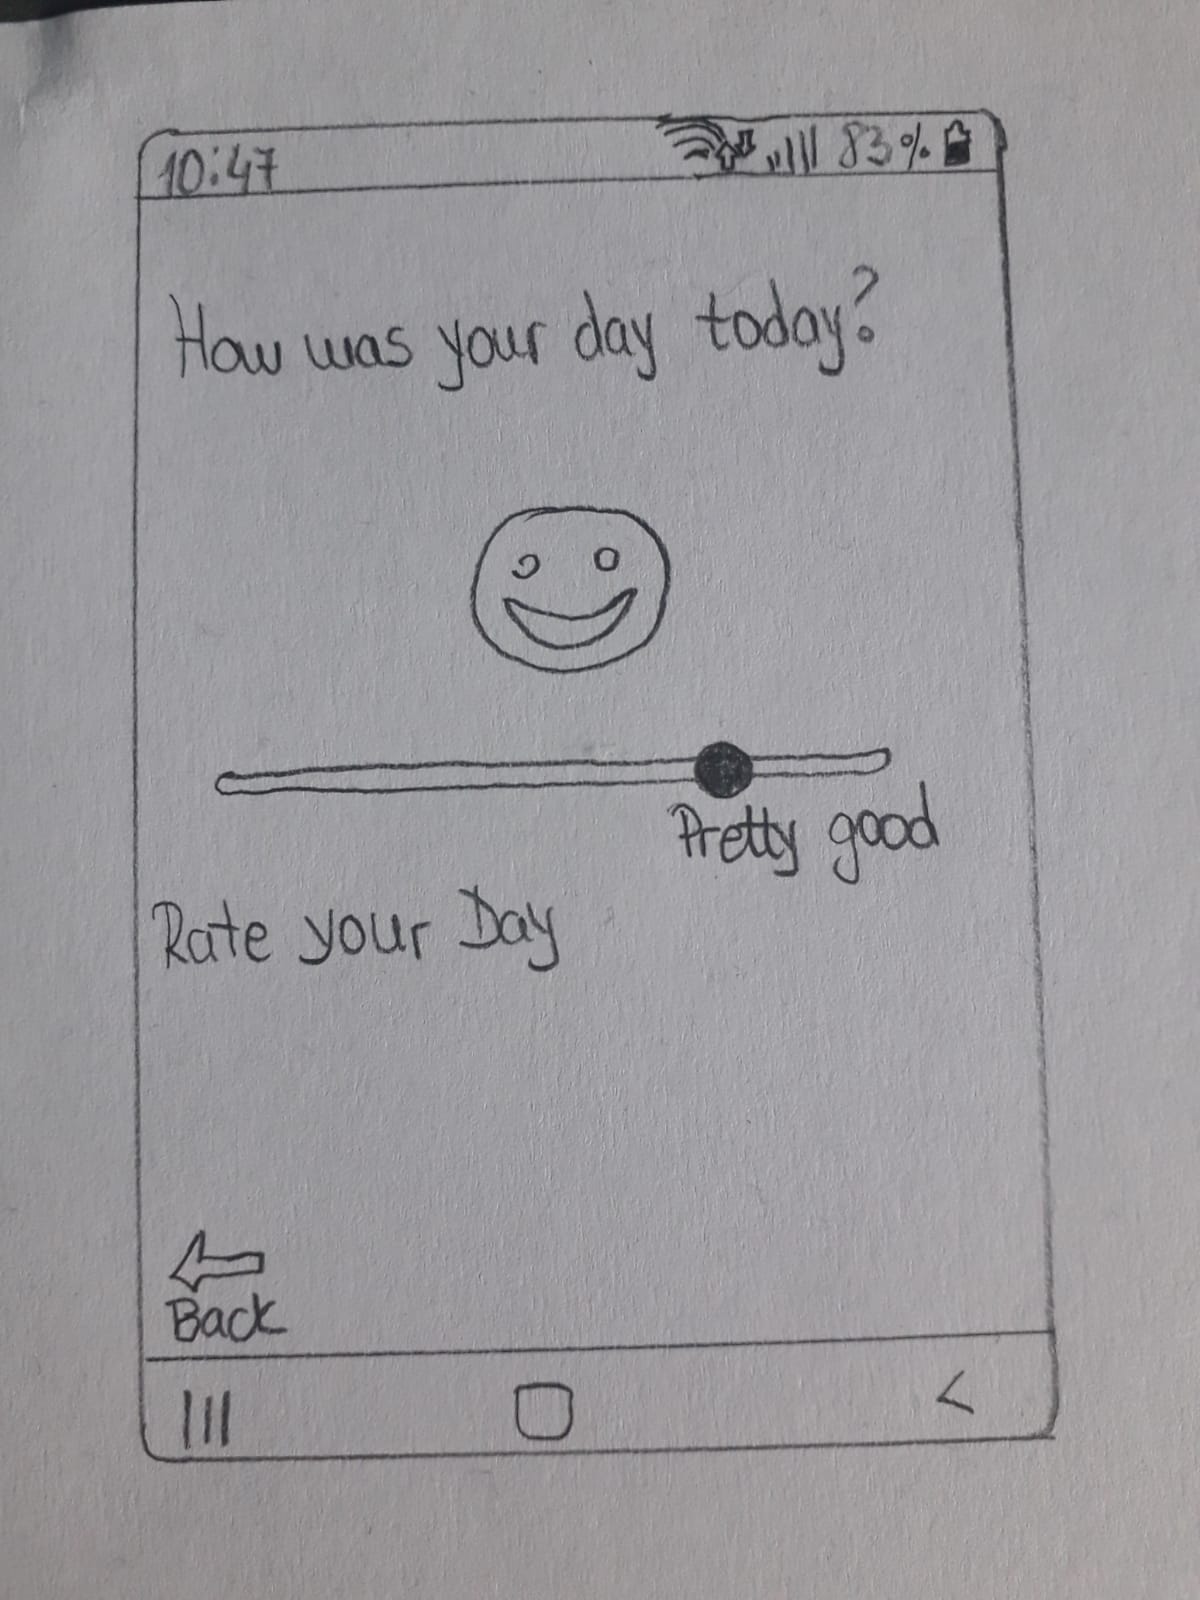 10:47 83%
How was your day today?
Pretty good
Rate your Day
Back